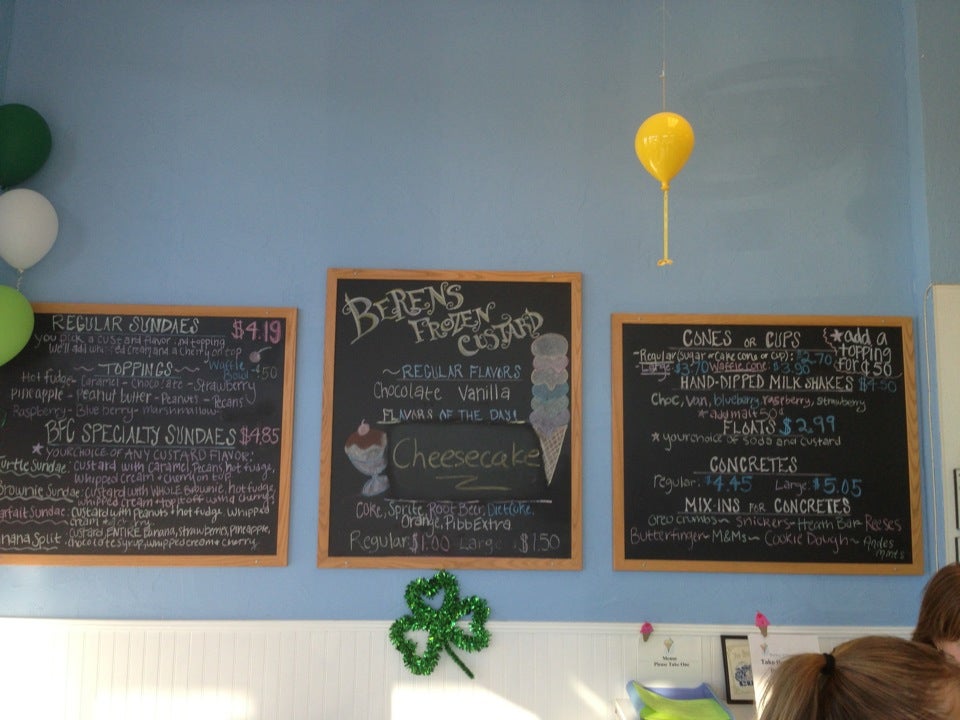 REGULAR SUNDAES $4.19
you pick a custard flavor and topping
we'll add whipped cream and a cherry on top
~TOPPINGS~ Waffle Bowl +50
Hot fudge - Caramel - Chocolate - Strawberry
Pineapple - Peanut butter - Peanuts - Pecans
Raspberry - Blueberry - marshmallow
BFC SPECIALTY SUNDAES $4.85
*YOUR CHOICE OF ANY CUSTARD FLAVOR:
Turtle Sundae: Custard with Caramel, Pecans, hot fudge,
whipped cream + cherry on top
Brownie Sundae: Custard with WHOLE Brownie, hot fudge,
whipped cream + top it off with a cherry
Parfait Sundae: Custard with Peanuts + hot fudge, whipped
cream + cherry
Banana Split: Custard, ENTIRE Banana, strawberry, pineapple,
chocolate syrup, whipped cream + cherry
BERENS
FROZEN
CUSTARD
~REGULAR FLAVORS
Chocolate Vanilla
FLAVORS OF THE DAY!
Cheesecake
Coke, Sprite, Root Beer, Diet Coke,
Orange, Pibb Extra
Regular $1.00 Large $1.50
CONES or CUPS
Regular (Sugar or Cake cone or cup): $2.70
Large: $3.70 Waffle cone: $3.95
*add a
topping
for ¢50
HAND-DIPPED MILKSHAKES $4.50
Choc, Van, blueberry, raspberry, strawberry
*add malt 50¢
FLOATS $2.99
*your choice of soda and custard
CONCRETES
Regular: $4.45 Large: $5.05
MIX-INS FOR CONCRETES
Oreo crumbs ~ Snickers ~ Heath Bar ~ Reeses
Butterfinger ~ M&Ms ~ Cookie Dough ~ Andes Mints
Menu
Please Take One
Take